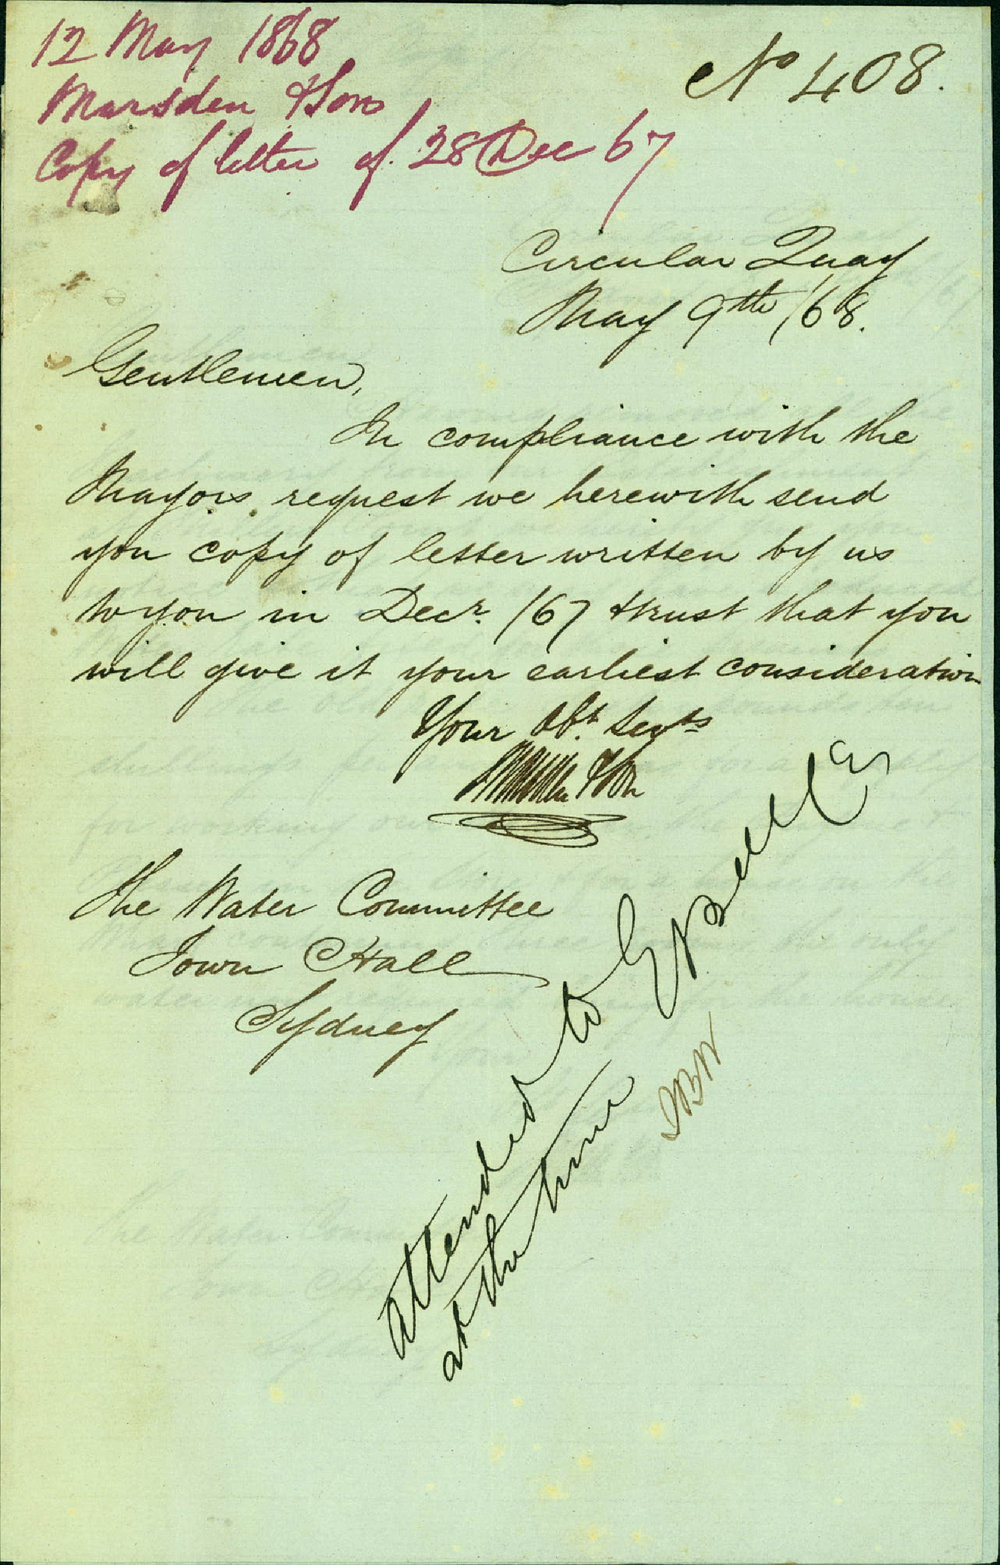 12 May 1868
Marsden & Sons
Copy of letter of 28 Dec 67
No 408.
Circular Quay
May 9th /68.
Gentlemen,
In compliance with the
Mayors request we herewith send
you copy of letter written by us
to you in Decr. /67 & trust that you
will give it your earliest consideration
Your Obt. Servts
Marsden & Son
The Water Committee
Town Hall
Sydney
Attended to
at the time